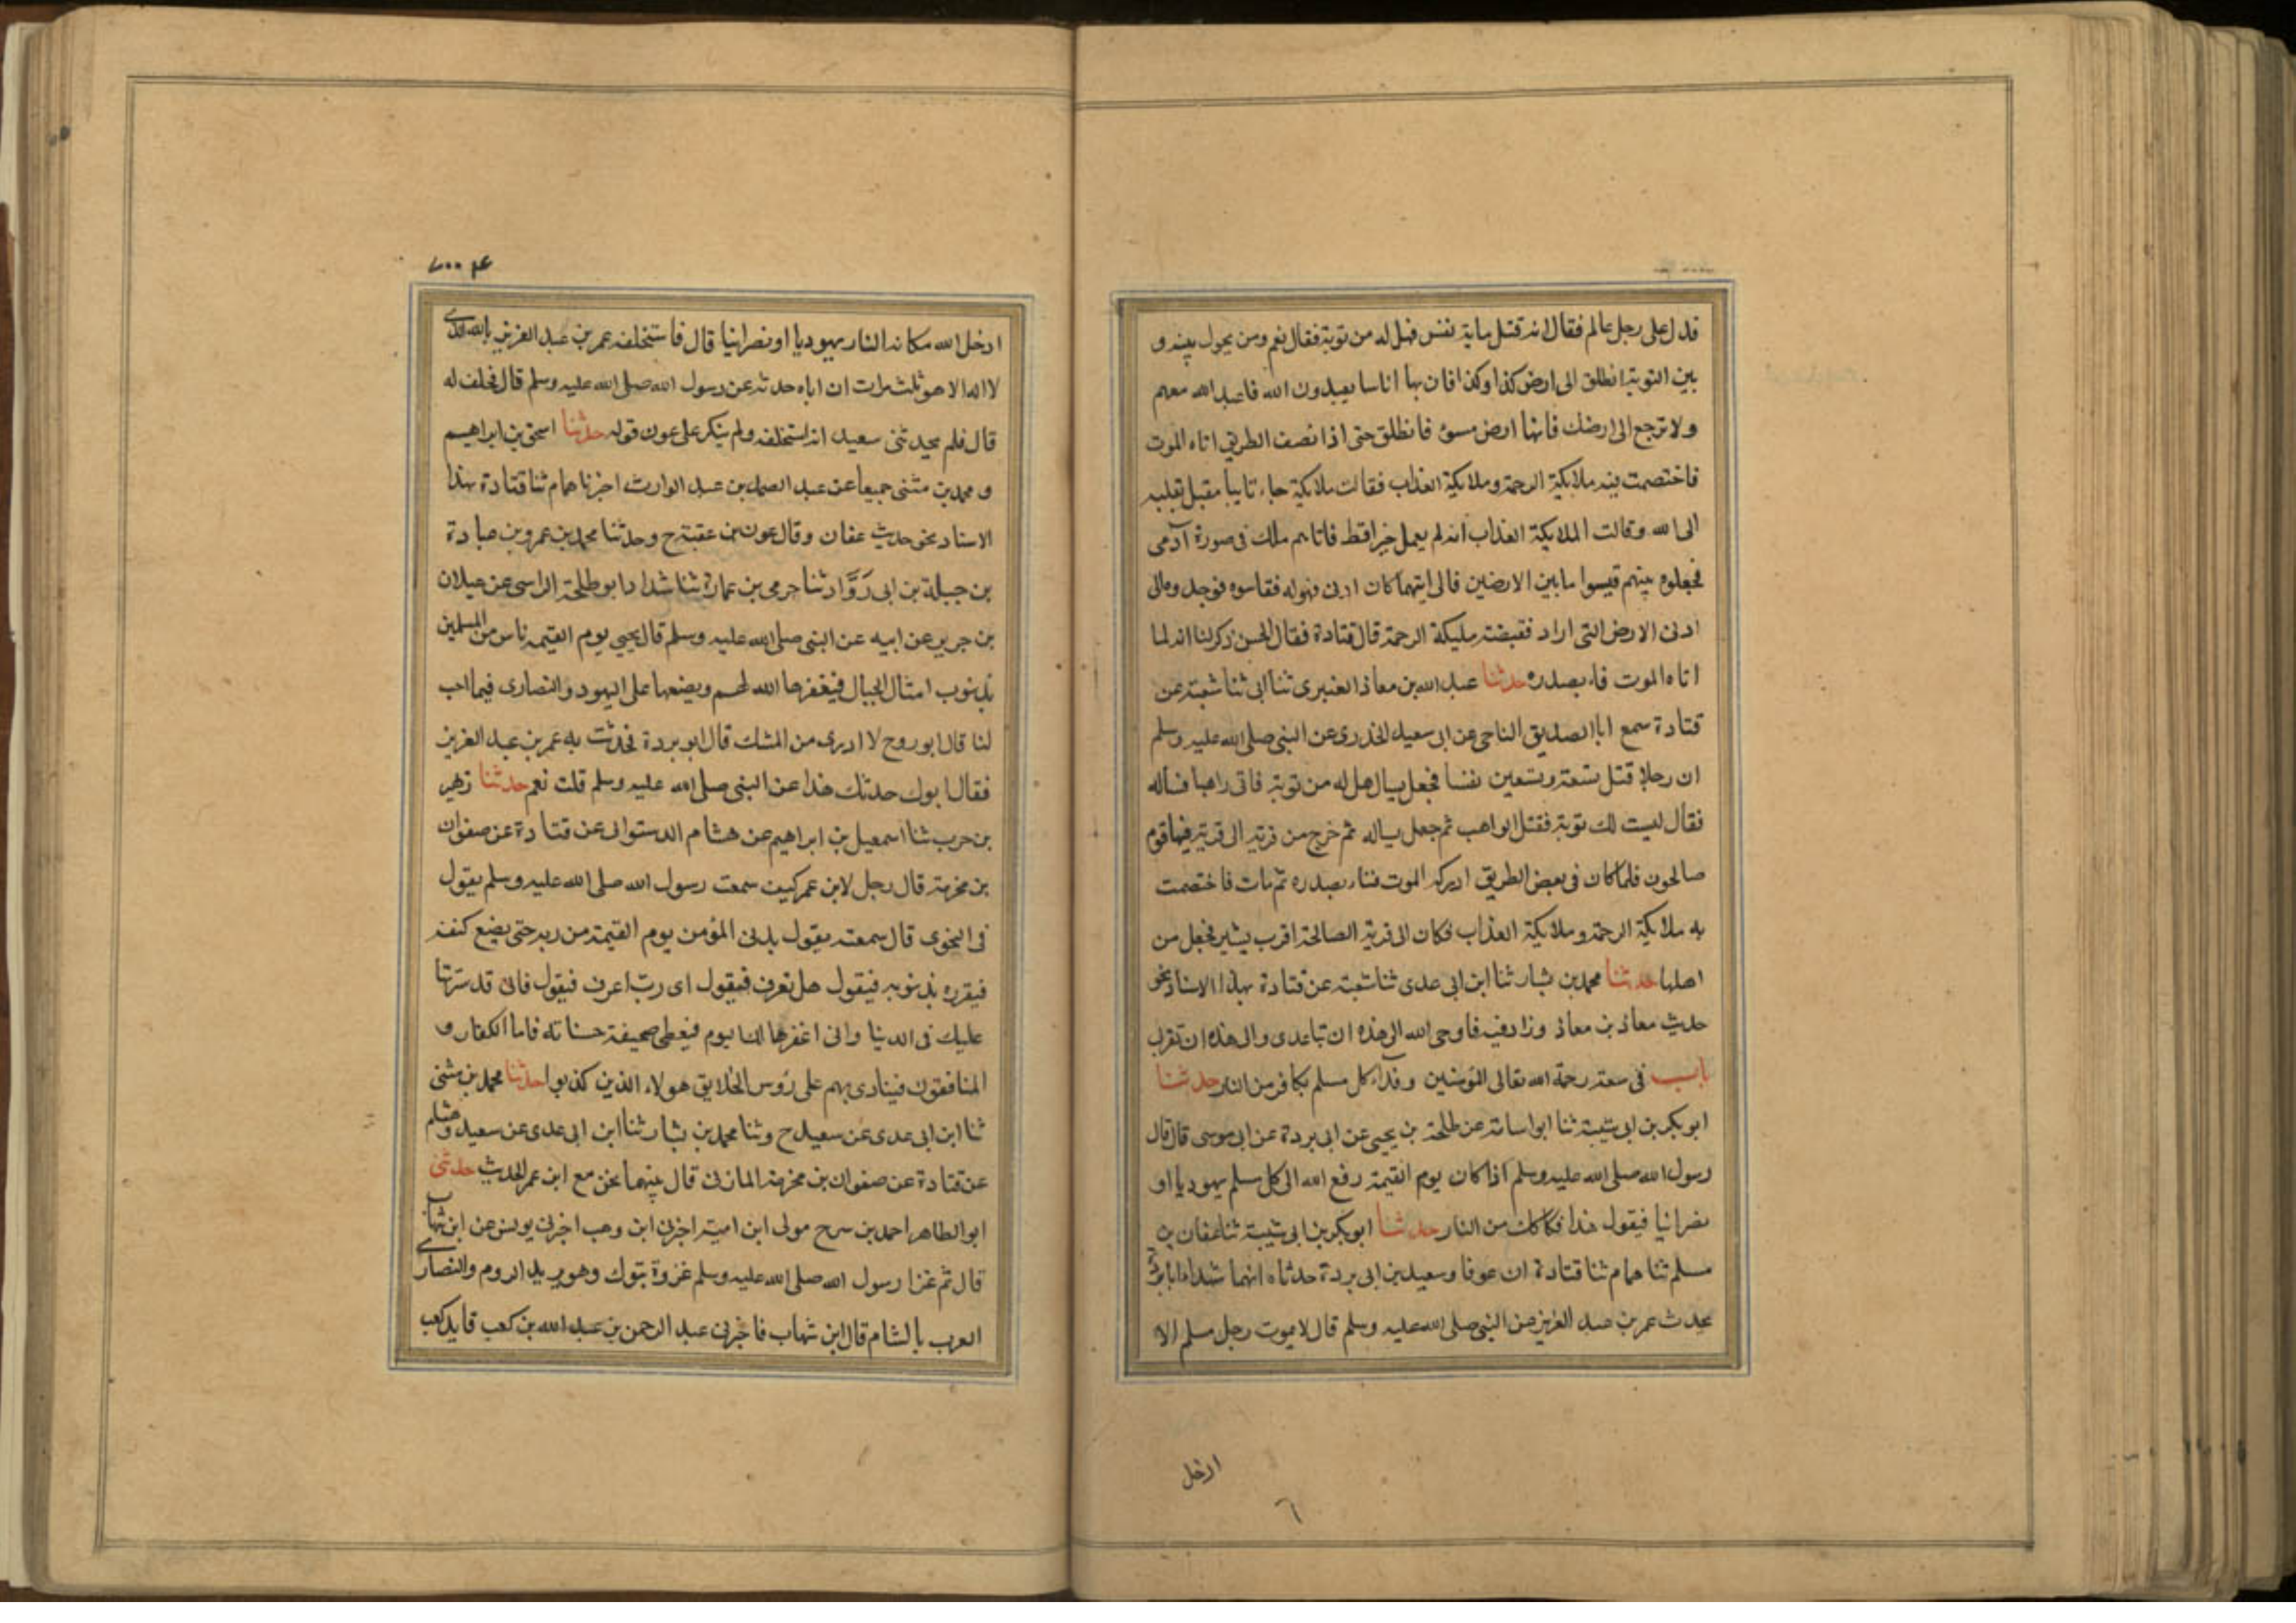 فدل على رجل عالم فقال انه قتل ماية نفس فهل له من توبة فقال نعم ومن يحول بينه و
بين التوبة انطلق الى ارض كذا وكذا فان بها اناسا يعبدون الله فاعبد الله معهم
ولا ترجع الى ارضك فانها ارض سوء فانطلق حتى اذا نصف الطريق اتاه الموت
فاختصمت فيه ملايكة الرحمة وملايكة العذاب فقالت ملايكة جاء تايبا مقبل بقلبه
الى الله وقالت الملايكة العذاب انه لم يعمل خيرا قط فاتاهم ملك فى صورة آدمى
فجعلوه بينهم قيسوا ما بين الارضين فالى ايتهما كان ادنى فهو له فقاسوه فوجدوه الى
ادنى الارض التى اراد فقبضته مليكة الرحمة قال قتادة فقال الحسن ذكر لنا انه لما
اتاه الموت ناء بصدره حدثنا عبد الله بن معاذ العنبرى ثنا ابى ثنا شعبة عن
قتادة سمع ابا الصديق الناجى عن ابى سعيد الخدرى عن النبى صلى الله عليه وسلم
ان رجلا قتل تسعة وتسعين نفسا فجعل يسال هل له من توبة فاتى راهبا فساله
فقال ليست لك توبة فقتل الراهب ثم جعل يساله ثم خرج من قرية الى قرية فيها قوم
صالحون فلما كان فى بعض الطريق ادركه الموت فناء بصدره ثم مات فاختصمت
به ملايكة الرحمة وملايكة العذاب فكان الى قرية الصالحة اقرب بشبر فجعل من
اهلها حدثنا محمد بن بشار ثنا ابن ابى عدى ثنا شعبة عن قتادة بهذا الاسناد نحو
حديث معاذ بن معاذ وزاد فيه فاوحى الله الى هذه ان تباعدى والى هذه ان تقربى
باب فى سعة رحمة الله تعالى للمؤمنين وفداء كل مسلم بكافر من النار حدثنا
ابو بكر بن ابى شيبة ثنا ابو اسامة عن طلحة بن يحيى عن ابى بردة عن ابى موسى قال قال
رسول الله صلى الله عليه وسلم اذا كان يوم القيمة رفع الله الى كل مسلم يهوديا او
نصرانيا فيقول هذا فكاكك من النار حدثنا ابو بكر بن ابى شيبة ثنا عفان بن
مسلم ثنا همام ثنا قتادة ان عونا وسعيد بن ابى بردة حدثاه انهما شهدا ابا بردة
يحدث عمر بن عبد العزيز عن النبى صلى الله عليه وسلم قال لا يموت رجل مسلم الا
ادخل
ادخل الله مكانه النار يهوديا او نصرانيا قال فاستحلفه عمر بن عبد العزيز بالله الذى
لا اله الا هو ثلث مرات ان اباه حدثه عن رسول الله صلى الله عليه وسلم قال فحلف له
قال فلم يحدثنى سعيد انه استحلفه ولم ينكر على عون قوله حدثنا اسحق بن ابراهيم
و محمد بن مثنى جميعا عن عبد الصمد بن عبد الوارث اخبرنا همام ثنا قتادة بهذا
الاسناد نحو حديث عفان وقال عون بن عقبة ح وحدثنا محمد بن عمرو بن عبادة
بن جبلة بن ابى رَوَّاد ثنا حرمى بن عمارة ثنا شداد ابو طلحة الراسى عن غيلان
بن جرير عن ابيه عن النبى صلى الله عليه وسلم قال يجيى يوم القيمة ناس من المسلمين
بذنوب امثال الجبال فيغفرها الله لهم ويضعها على اليهود والنصارى فيما احب
لنا قال ابو روح لا ادرى من الشك قال ابو بردة فحدثت به عمر بن عبد العزيز
فقال ابوك حدثك هذا عن النبى صلى الله عليه وسلم قلت نعم حدثنا زهير
بن حرب ثنا اسمعيل بن ابراهيم عن هشام الدستوائى عن قتادة عن صفوان
بن محرمة قال رجل لابن عمر كيف سمعت رسول الله صلى الله عليه وسلم يقول
فى النجوى قال سمعته يقول يدنى المؤمن يوم القيمة من ربه حتى يضع كنفه
فيقرره بذنوبه فيقول هل تعرف فيقول اى ربّ اعرف فيقول فانى قد سترتها
عليك فى الدنيا وانى اغفرها لك اليوم فيعطى صحيفة حسناته فاما الكفار و
المنافقون فينادى بهم على رؤس الخلايق هولاء الذين كذبوا حدثنا محمد بن مثنى
ثنا ابن ابى عدى عن سعيد ح وثنا محمد بن بشار ثنا ابن ابى عدى عن سعيد وهشام
عن قتادة عن صفوان بن محرمة المازنى قال بينهما نحن مع ابن عمر الحديث حدثنى
ابو الطاهر احمد بن سرح مولى ابن امية اخبرنى ابن وهب اخبرنى يونس عن ابن شهاب
قال ثم غزا رسول الله صلى الله عليه وسلم غزوة تبوك وهو يريد الروم والنصارى
العرب بالشام قال ابن شهاب فاخبرنى عبد الرحمن بن عبد الله بن كعب قايد كعب